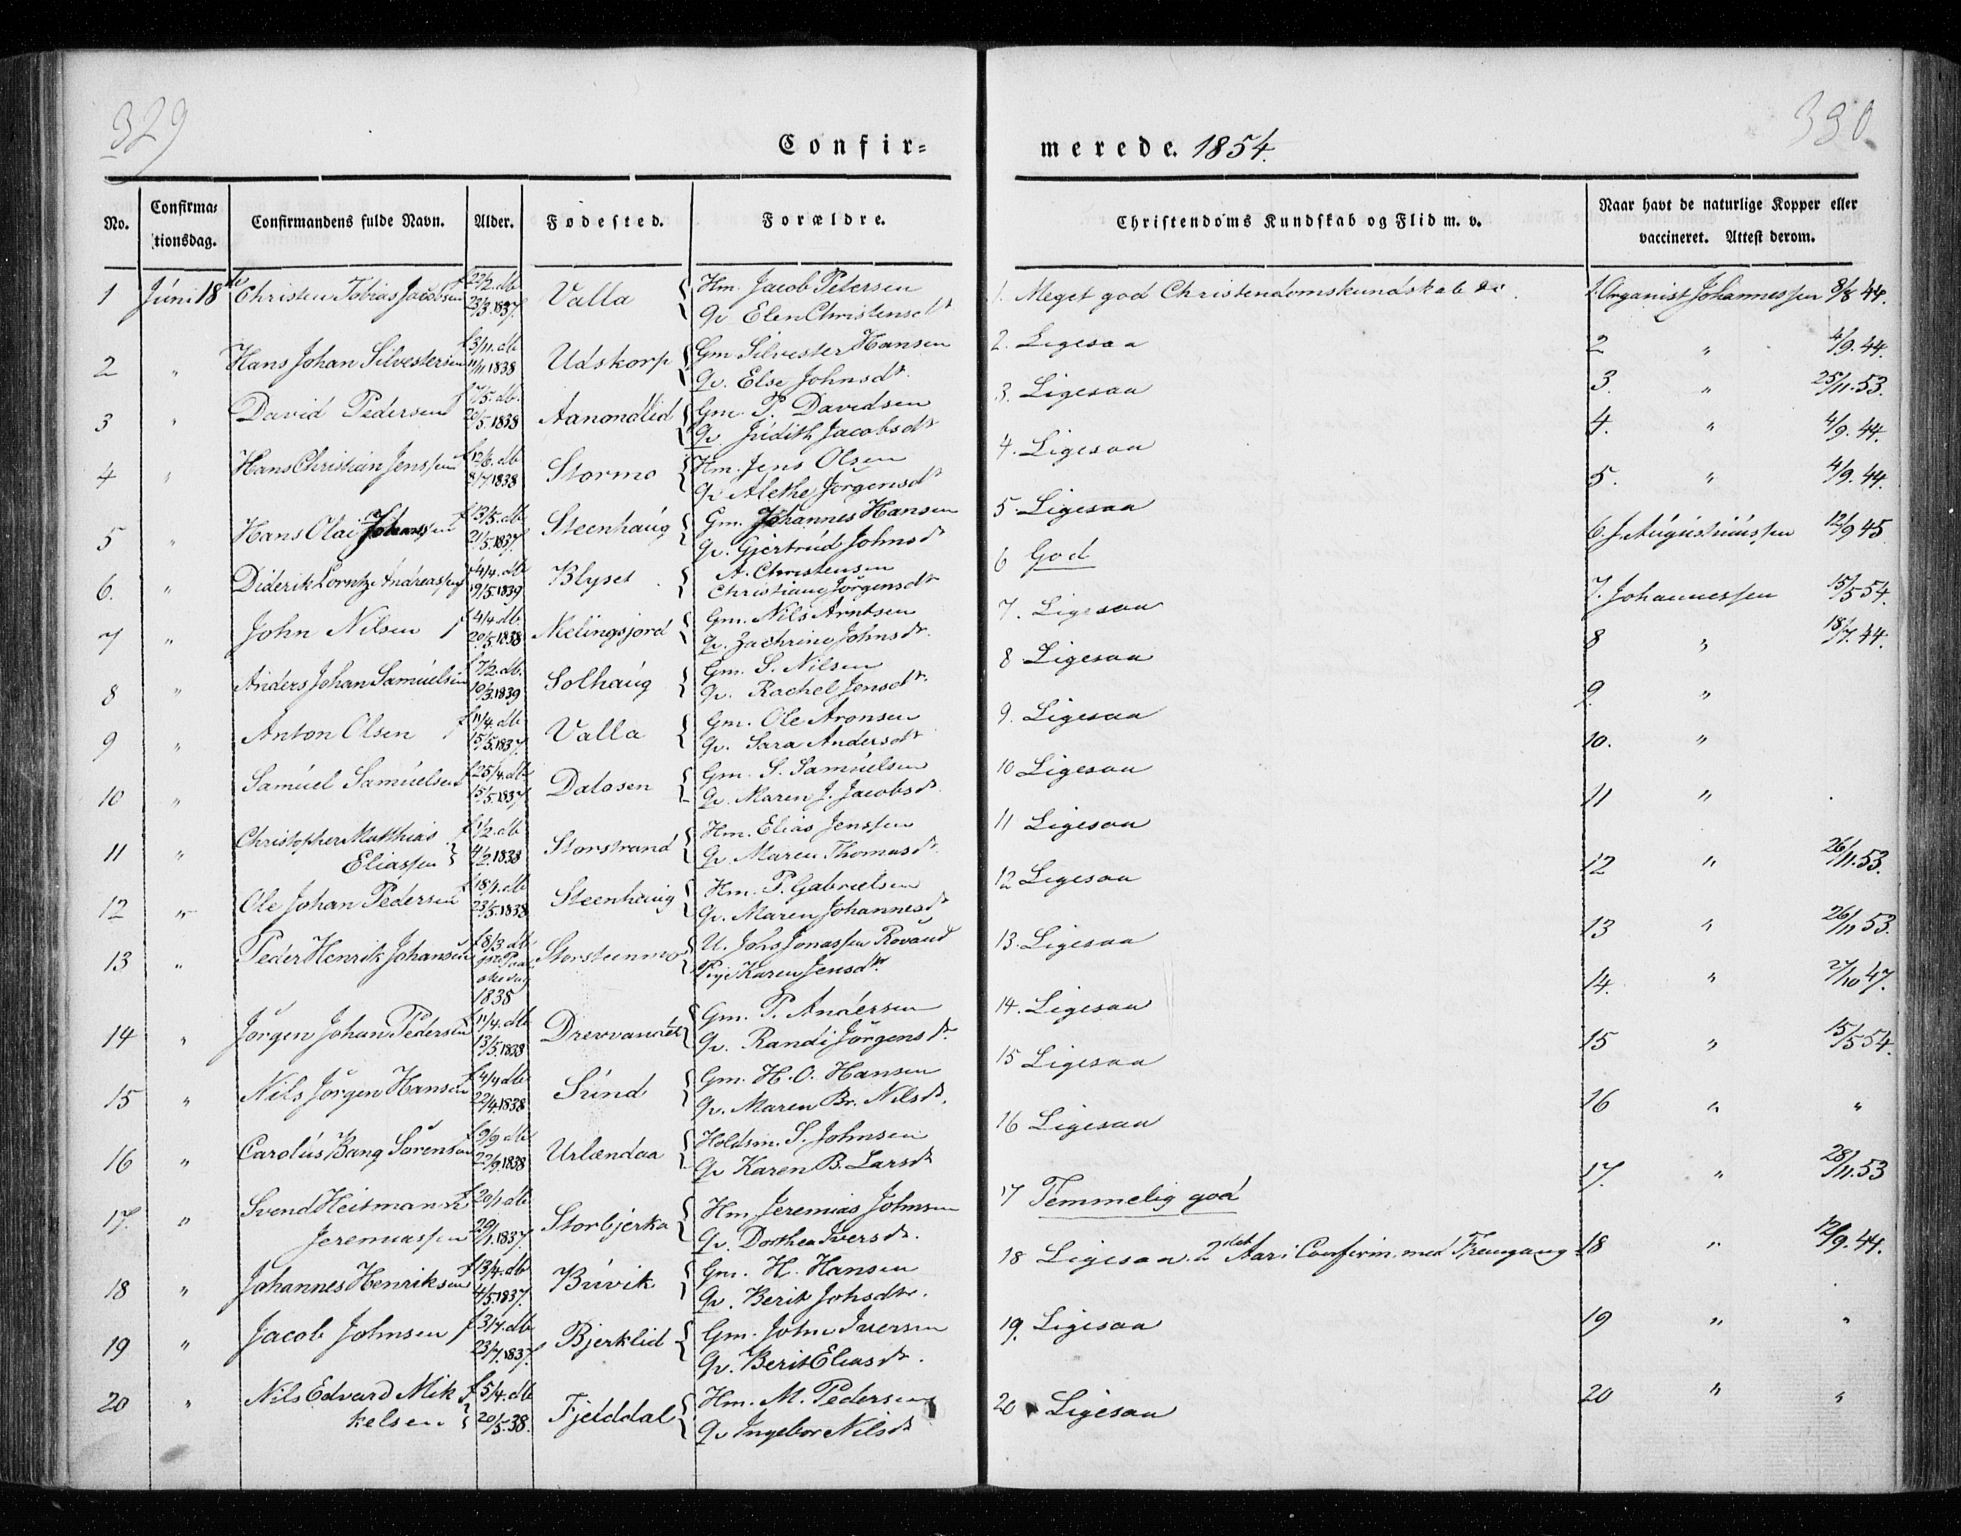 329
Confir-
No.
Confirma-
tionsdag.
Confirmandens fulde Navn.
Alder.
Fødested.
Forældre.
1 Juni 18de Christen Tobias Jacobsen f 22/2. db 23/3.1837. Valla { Hm. Jacob Petersen
Qv. Elen Christensdt
2 " Hans Johan Silvestersen f 3/11. db 11/11 1838 Udskorp { Gm Silvester Hansen
Qv. Else Johnsdt.
3 " David Pedersen f 7/5. db. 20/5.1838 Aanondlid { Gm. P. Davidsen
Qv. Judith Jacobsdt
4 " Hans Christian Jenssen f 12/6. db 8/7.1838 Stormo { Hm. Jens Olsen
Qv Alethe Jørgensdt
5 " Hans Olai Johanssen f 13/5. db 21/5.1837. Steenhaug { Gm. Johannes Hansen
Qv. Gjertrud Johnsdt
6. " Diderik Lorntz Andreassen f 4/4. db 19/5.1839 Blyset { A. Christensen
Christiane Jørgensdt
7 " John Nilsen f 4/4 db 20/5.1838 Melingsjord { Gm. Nils Arntsen
Qv. Zachrine Johnsdt.
8 " Anders Johan Samuelsen f 7/2. db. 10/3.1839 Solhaug { Gm. S. Nilsen
Qv. Rachel Jensdt.
9 " Anton Olsen f 11/4. db 15/5.1837. Valla { Gm. Ole Aronsen
Qv. Sara Andersdt
10 " Samuel Samuelsen f 25/4. db 15/5.1837 Dalosen { Gm. S. Samuelsen
Qv. Maren J. Jacobsdt.
11 " Christopher Matthias
Eliassen } f 1/2. db 4/2.1838 Storstrand { Hm. Elias Jenssen
Qv. Maren Thomasdt.
12 " Ole Johan Pedersen f 18/4. db 23/5.1838 Steenhaug { Hm. P. Gabrielsen
Qv. Maren Johannesdt
13 " Peder Henrik Johansen f 8/3. db 1838 Storsteenmo { U. Johs Jonassen Rovand
Pige Karen Jensdtr.
14 " Jørgen Johan Pedersen f 11/4. db 13/5.1838 Drevvandet { Gm. P. Andersen
Qv. Randi Jørgensdt.
15 " Nils Jørgen Hansen f 4/4 db 22/4.1838 Sund { Gm. H. O. Hansen
Qv. Maren Br. Nilsdt.
16 " Carolus Bang Sørensen f 9/9 db 22/9.1838 Urlandaa { Holdsm. S. Johnsen
Qv Karen B. Larsdt
17. " Svend Heitmann
Jeremiassen f 20/1 db 29/1.1837. Storbjerka { Hm Jeremias Johnsen
Qv. Dorthea Iversdt.
18 " Johannes Henriksen f 13/4. db 4/5.1837. Buvik { Gm. H. Hansen
Qv. Berit Johsdtr.
19 " Jacob Johnsen f 3/7. db 23/7.1837. Bjerklid { Gm. John Iversen
Qv. Berit Eliasdt.
20 " Nils Edvard Mik-
kelsen } f 5/4. db 20/5.38. Fjelddal { Hm. M. Pedersen
Qv Ingebor Nilsdt
330
merede. 1854.
Christendoms Kundskab og Flid m. v.
Naar havt de naturlige Kopper eller
vaccineret. Attest derom.
1. Meget god Christendomskundskab &c. 1. Organist Johannessen 8/8 44.
2. Ligesaa 2 " 4/9. 44.
3. Ligesaa 3. " 25/11. 53.
4. Ligesaa 4. " 4/9. 44.
5 Ligesaa 5. " 4/9. 44.
6 God 6. J. Augustinussen 12/9 45
7. Ligesaa 7. Johannessen 15/5 54.
8 Ligesaa 8 " 18/7. 44.
9. Ligesaa 9 "
10 Ligesaa 10. "
11 Ligesaa 11 "
12 Ligesaa 12 " 26/11. 53.
13. Ligesaa 13 " 26/11 53.
14. Ligesaa 14. " 27/10 47.
15 Ligesaa 15 " 15/5 54.
16 Ligesaa 16 " "
17 Temmelig god 17. " 28/11. 53
18 Ligesaa. 2det Aar i Confirm. med Fremgang 18 " 12/9. 44.
19. Ligesaa 19 " "
20 Ligesaa 20 " "